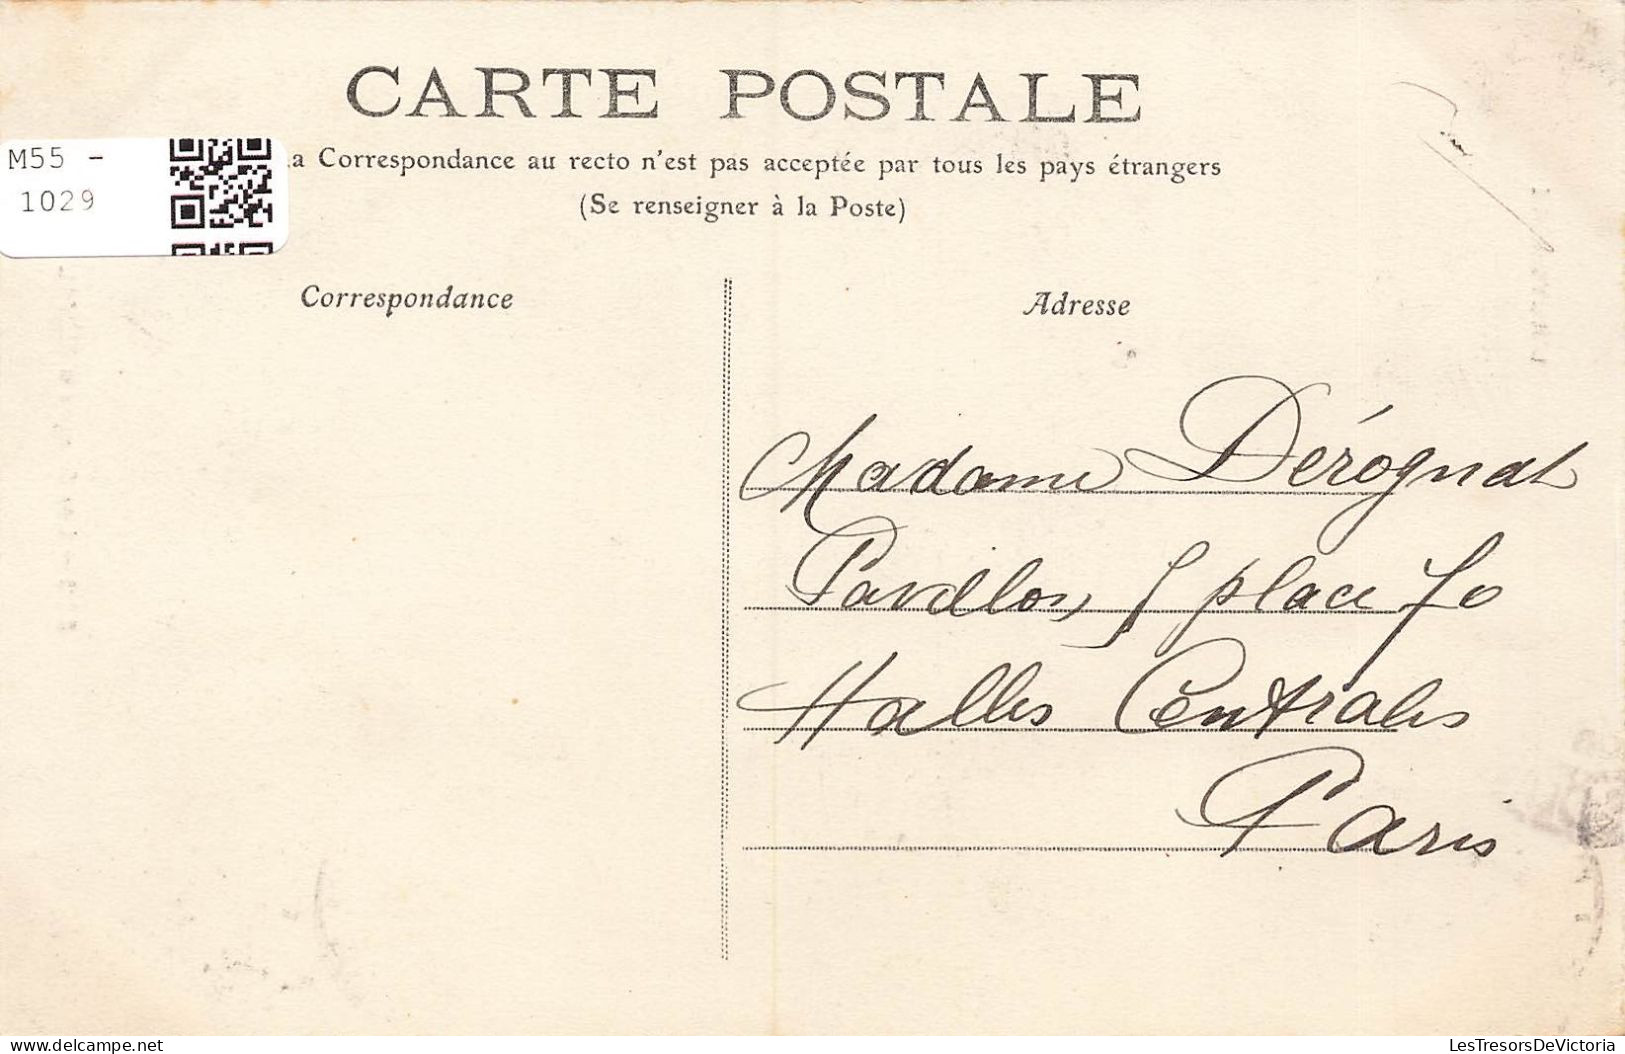 CARTE POSTALE
M55 -
1029
a Correspondance au recto n'est pas acceptée par tous les pays étrangers
(Se renseigner à la Poste)
Correspondance
Adresse
Madame Dérognat
Pavillon 5 place 70
Halles Centrales
Paris
delcampe.net
LesTresorsDeVictoria